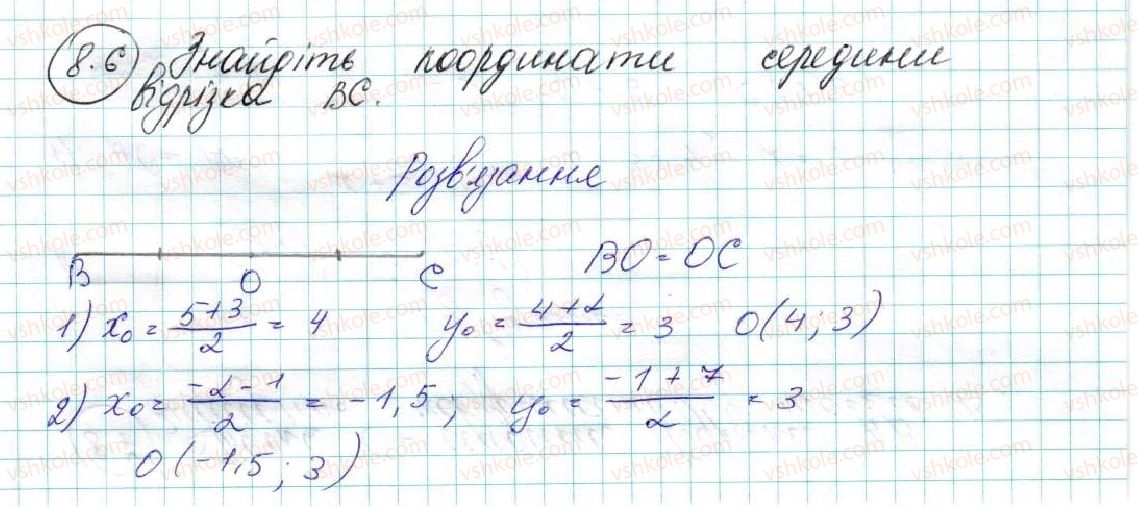 8.6 Знайдіть координати середини
відрізка BC.
Розв'язання
B O C BO = OC
1) x₀ = (5+3)/2 = 4 y₀ = (4+2)/2 = 3 O(4; 3)
2) x₀ = (-2-1)/2 = -1,5; y₀ = (-1+7)/2 = 3
O(-1,5; 3)